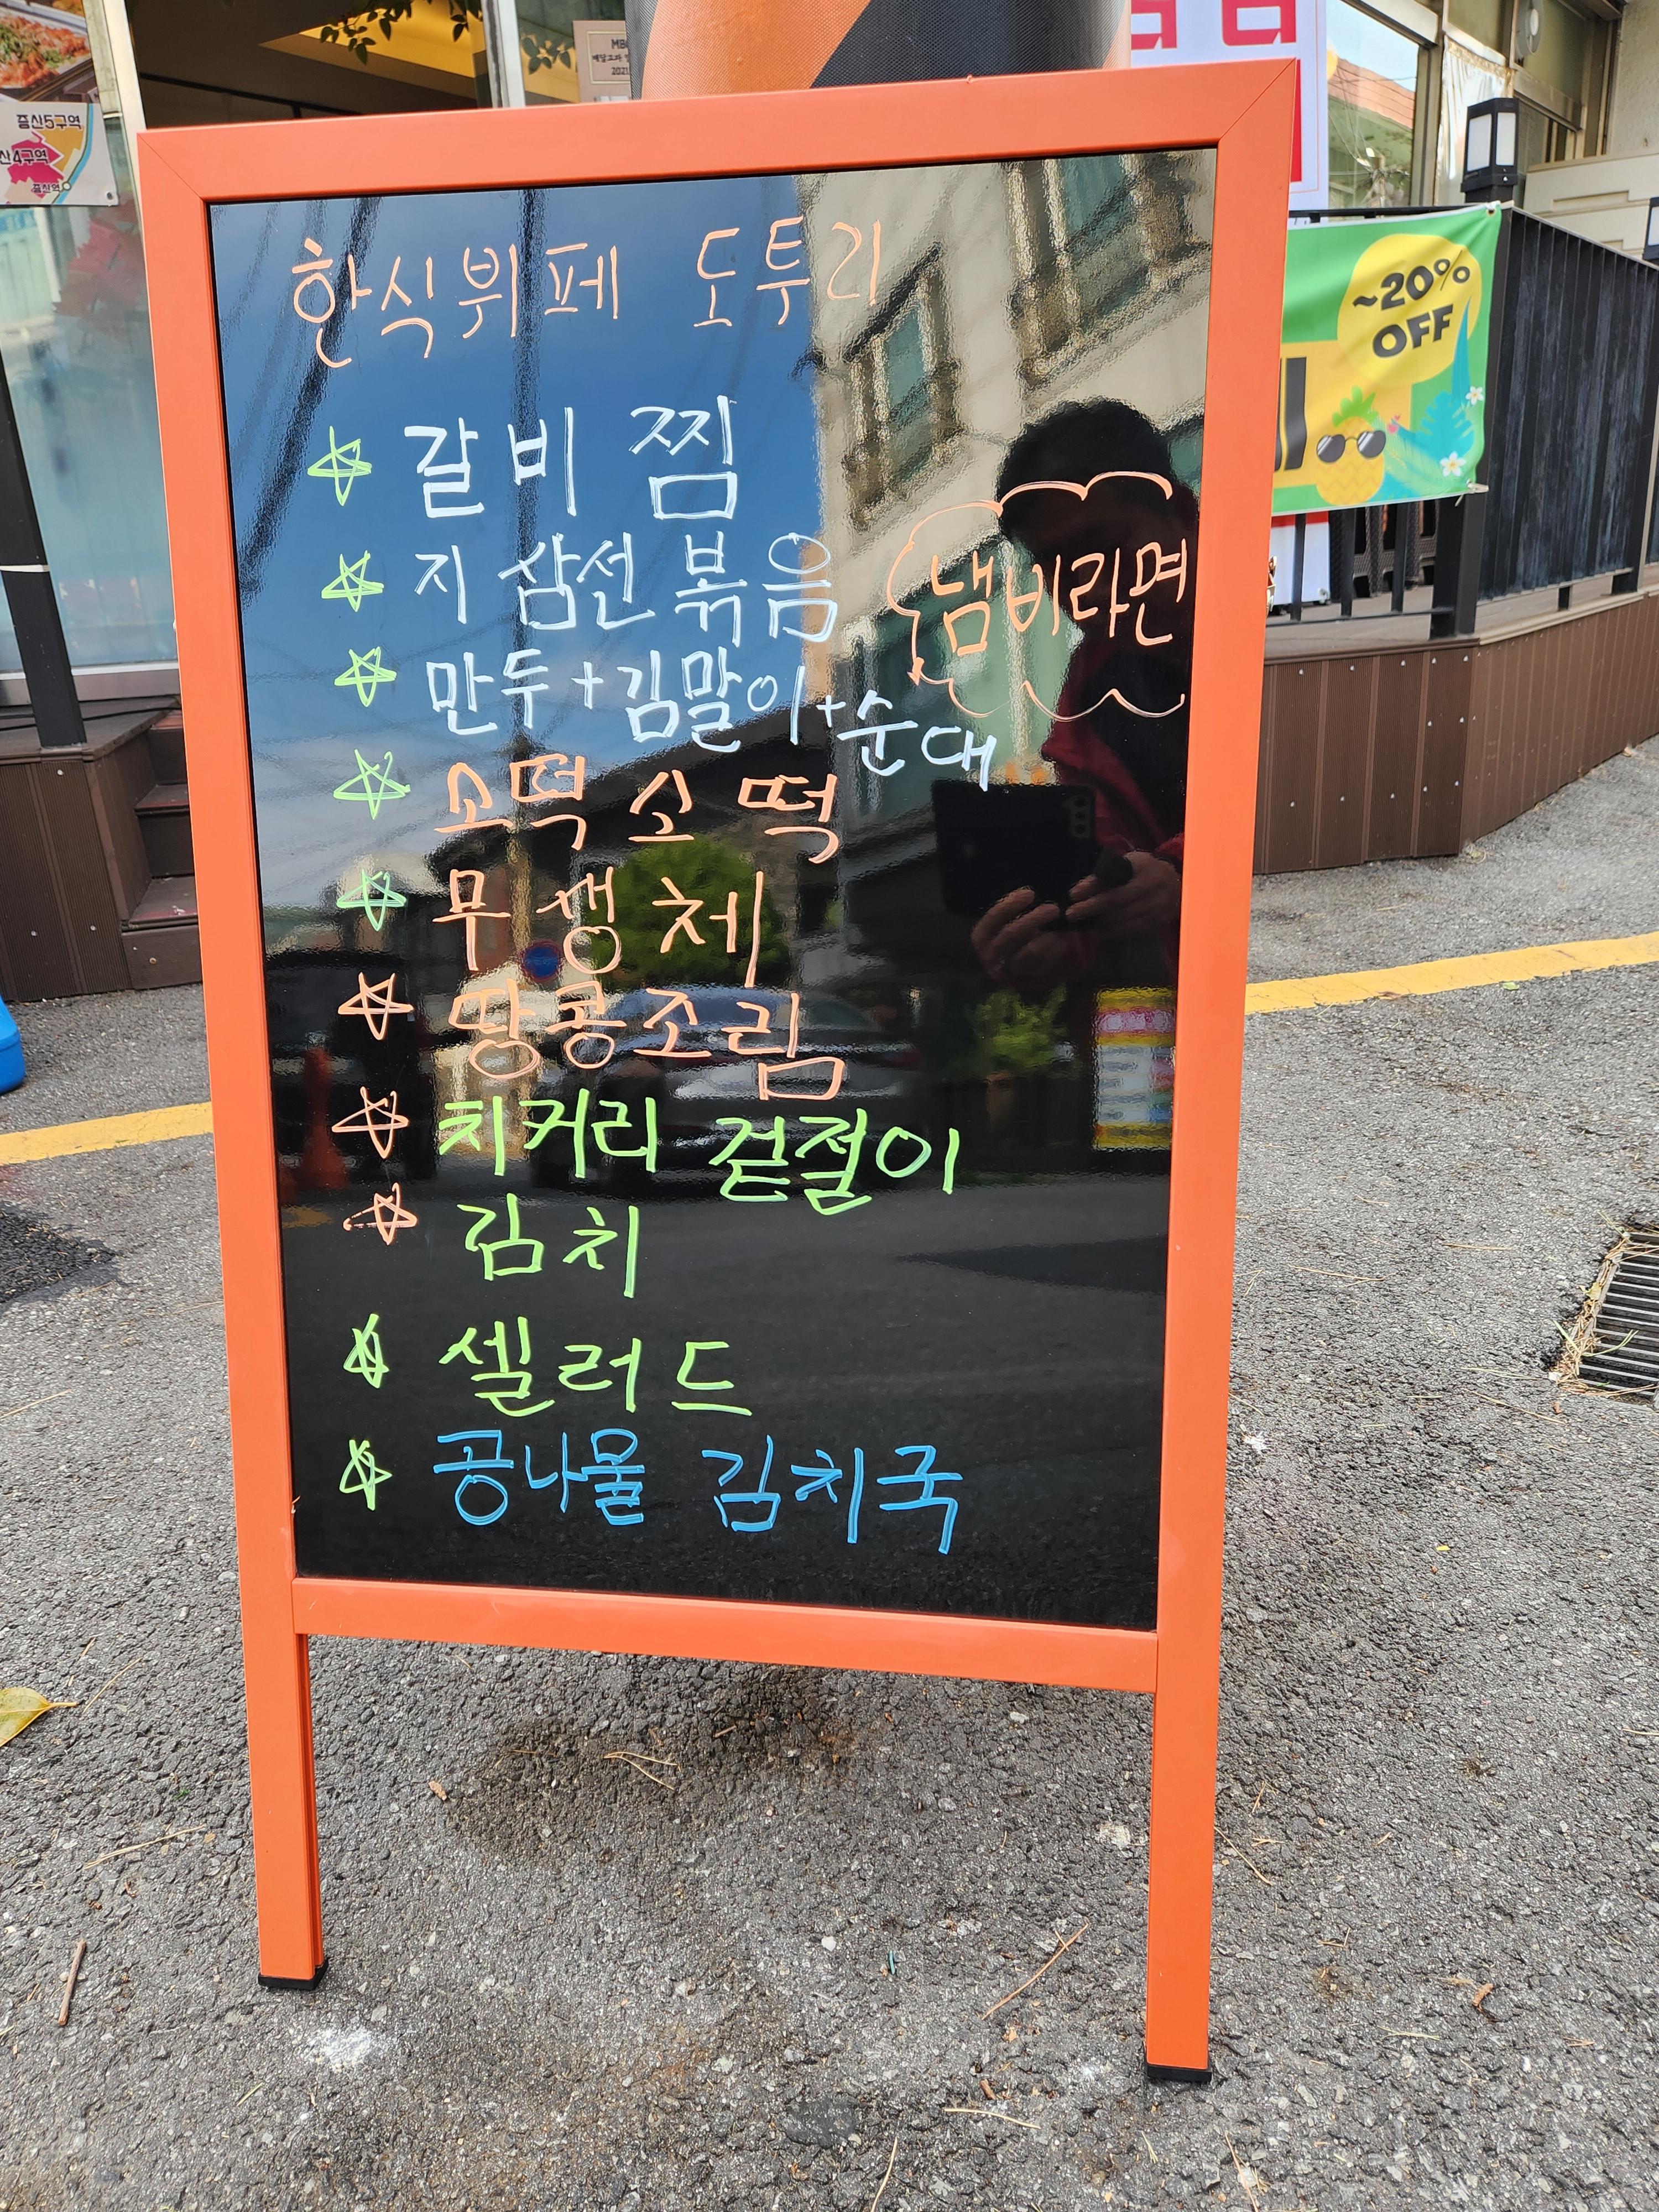 증산5구역
산4구역
증산역
2021
한식뷔페 도투리
갈비찜
지삼선볶음
냄비라면
만두+김말이+순대
소떡소떡
무생체
땅콩조림
치커리 겉절이
김치
셀러드
콩나물 김치국
~20%
OFF